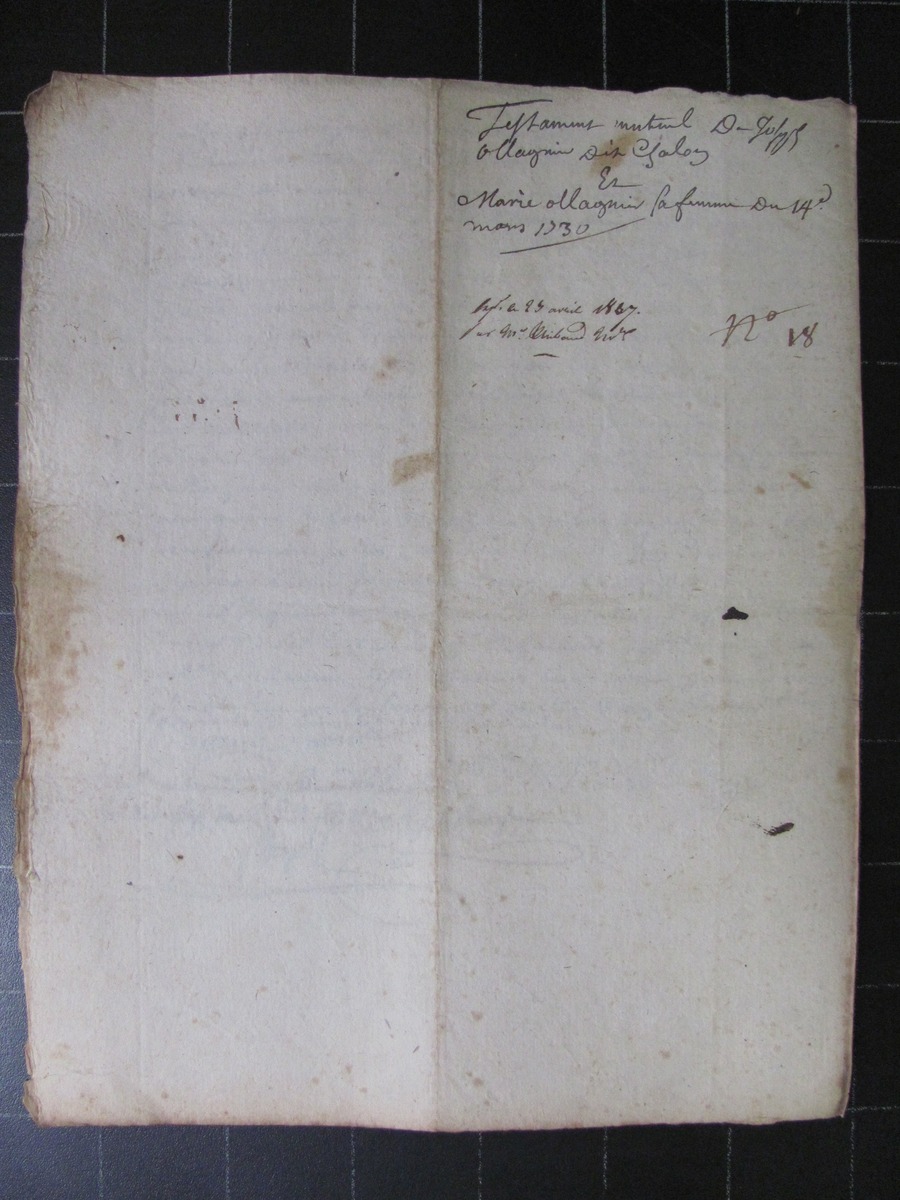 Testament mutuel De Joseph
ollagnier dit Chalon
Et
Marie ollagnier sa femme Du 14e
mars 1730
le 23 avril 1807.
par Me Nre
No 18